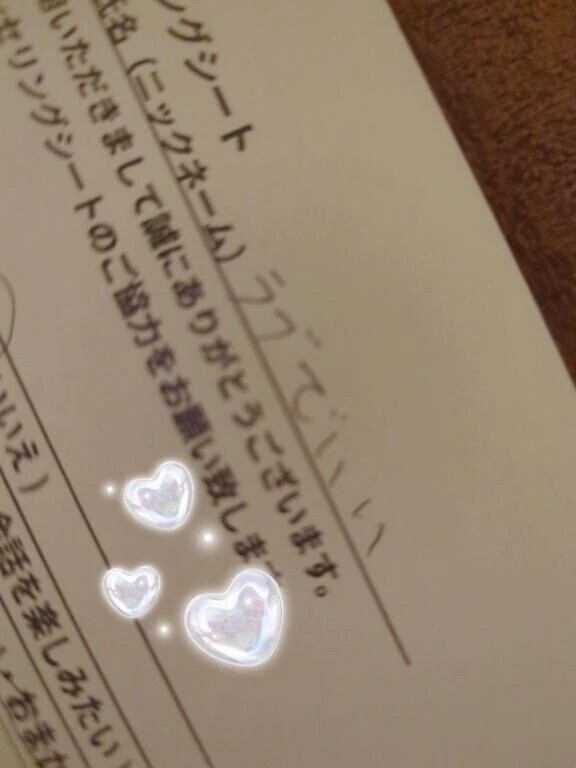 ングシート
氏名（ニックネーム）ラブでいい
用いただきまして誠にありがとうございます。
セリングシートのご協力をお願い致しま
いいえ）
会話を楽しみたい
おまか